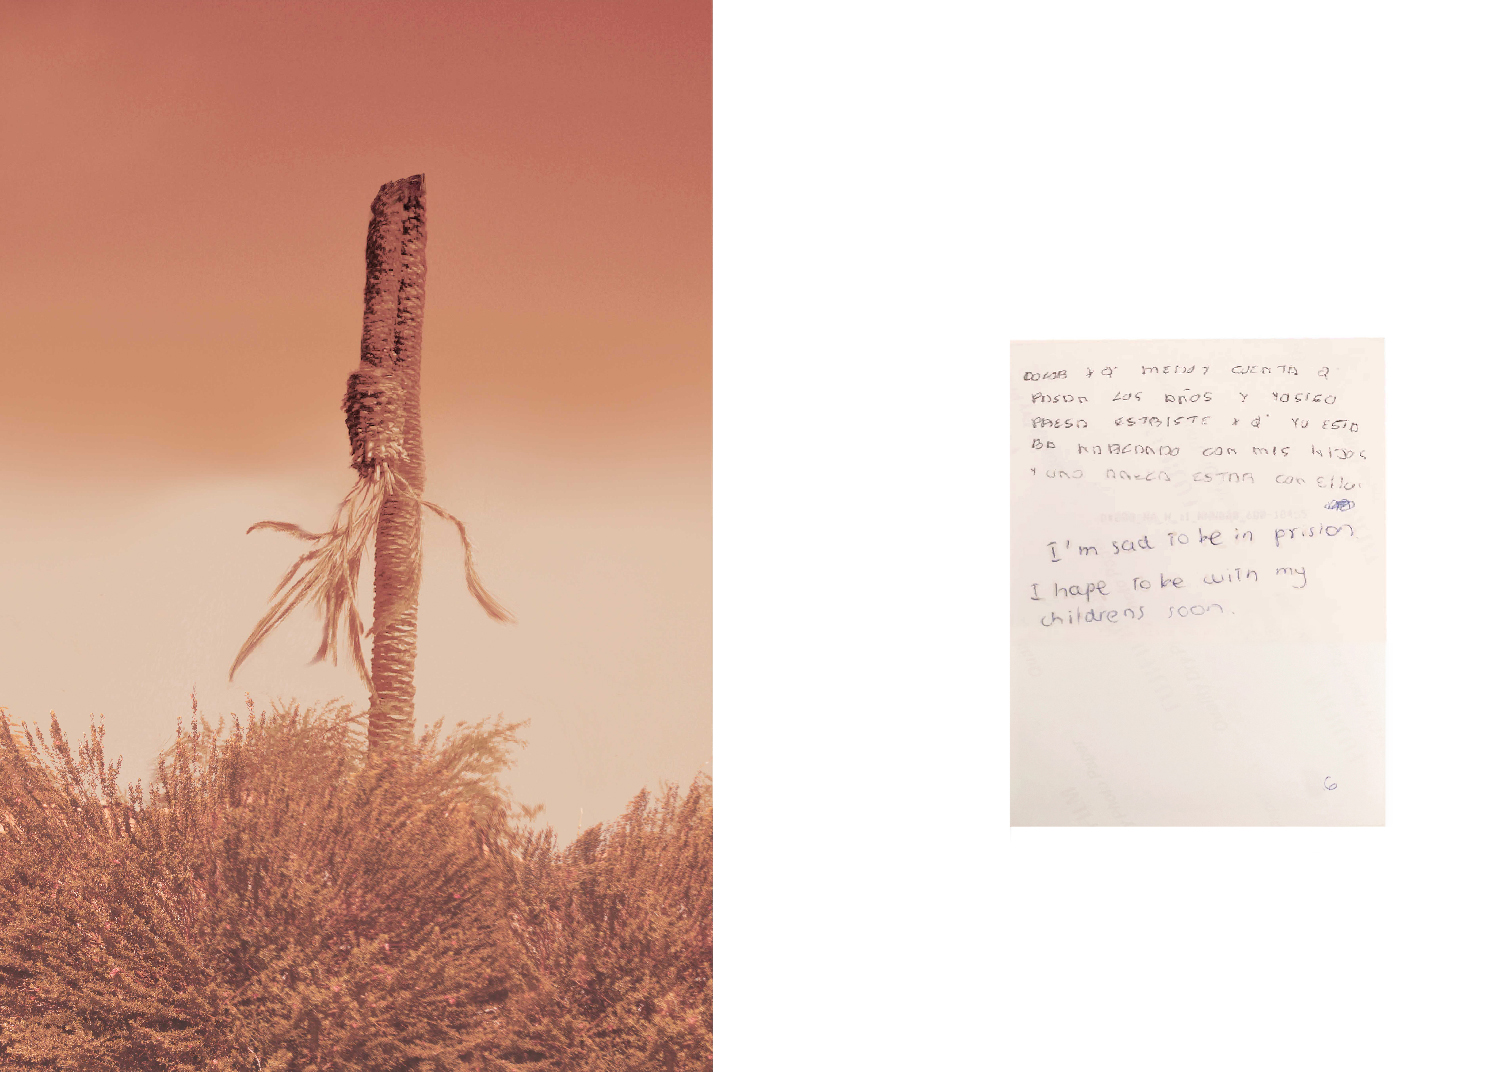 + Q' MEDOY CUENTA Q'
PASAN LOS AÑOS Y YOSIGO
PRESA ESTBISTE + Q' YO ESTA
BA HABLANDO CON MIS HIJOS
Y UNO ESTAR CON Ellos
I'm sad To be in prision
I hape To be with my
childrens soon.
6